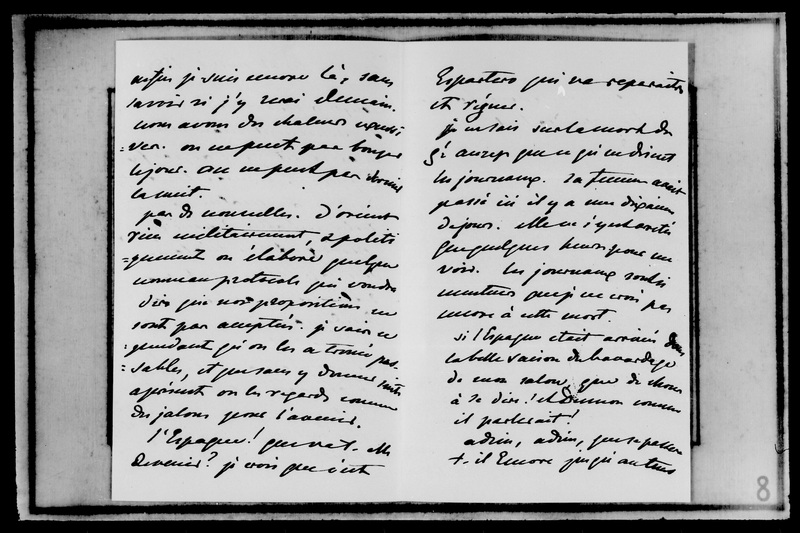 enfin je suis encore là, sans
savoir si j'y serai demain.
nous avons des chaleurs excessi
=ves. on ne peut pas bouger
le jour. on ne peut pas dormir
la nuit.
pas de nouvelles. d'orient
rien militairement, & politi
=quement on élabore quelque
nouveau protocole qui voudra
dire que nos propositions ne
sont pas acceptées. je vois ce
=pendant qu'on les a trouvé pas
=sables, et que sans y donner suite
à présent on les regarde comme
des jalons pour l'avenir.
l'Espagne! que va-t-elle
devenir? je crois que c'est
Espartero qui va reparaître
et régner.
je ne sais sur la mort du
g. que ce qu'en disent
les journaux. sa femme avait
passé ici il y a une dizaine
de jours. elle ne s'y est arrêtée
que quelques heures pour me
voir. les journaux sont si
menteurs que je ne crois pas
encore à cette mort.
si l'Espagne était arrivée dans
la belle saison du bavardage
de mon salon, que de choses
à se dire! et Dumon comme
il parlerait!
adieu, adieu, que se passera
t-il encore jusqu'au tems
8